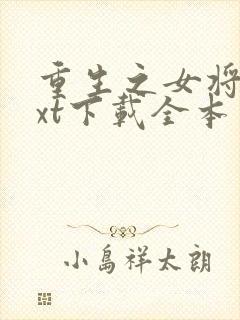 重生之女将
xt下载全本
小島祥太朗